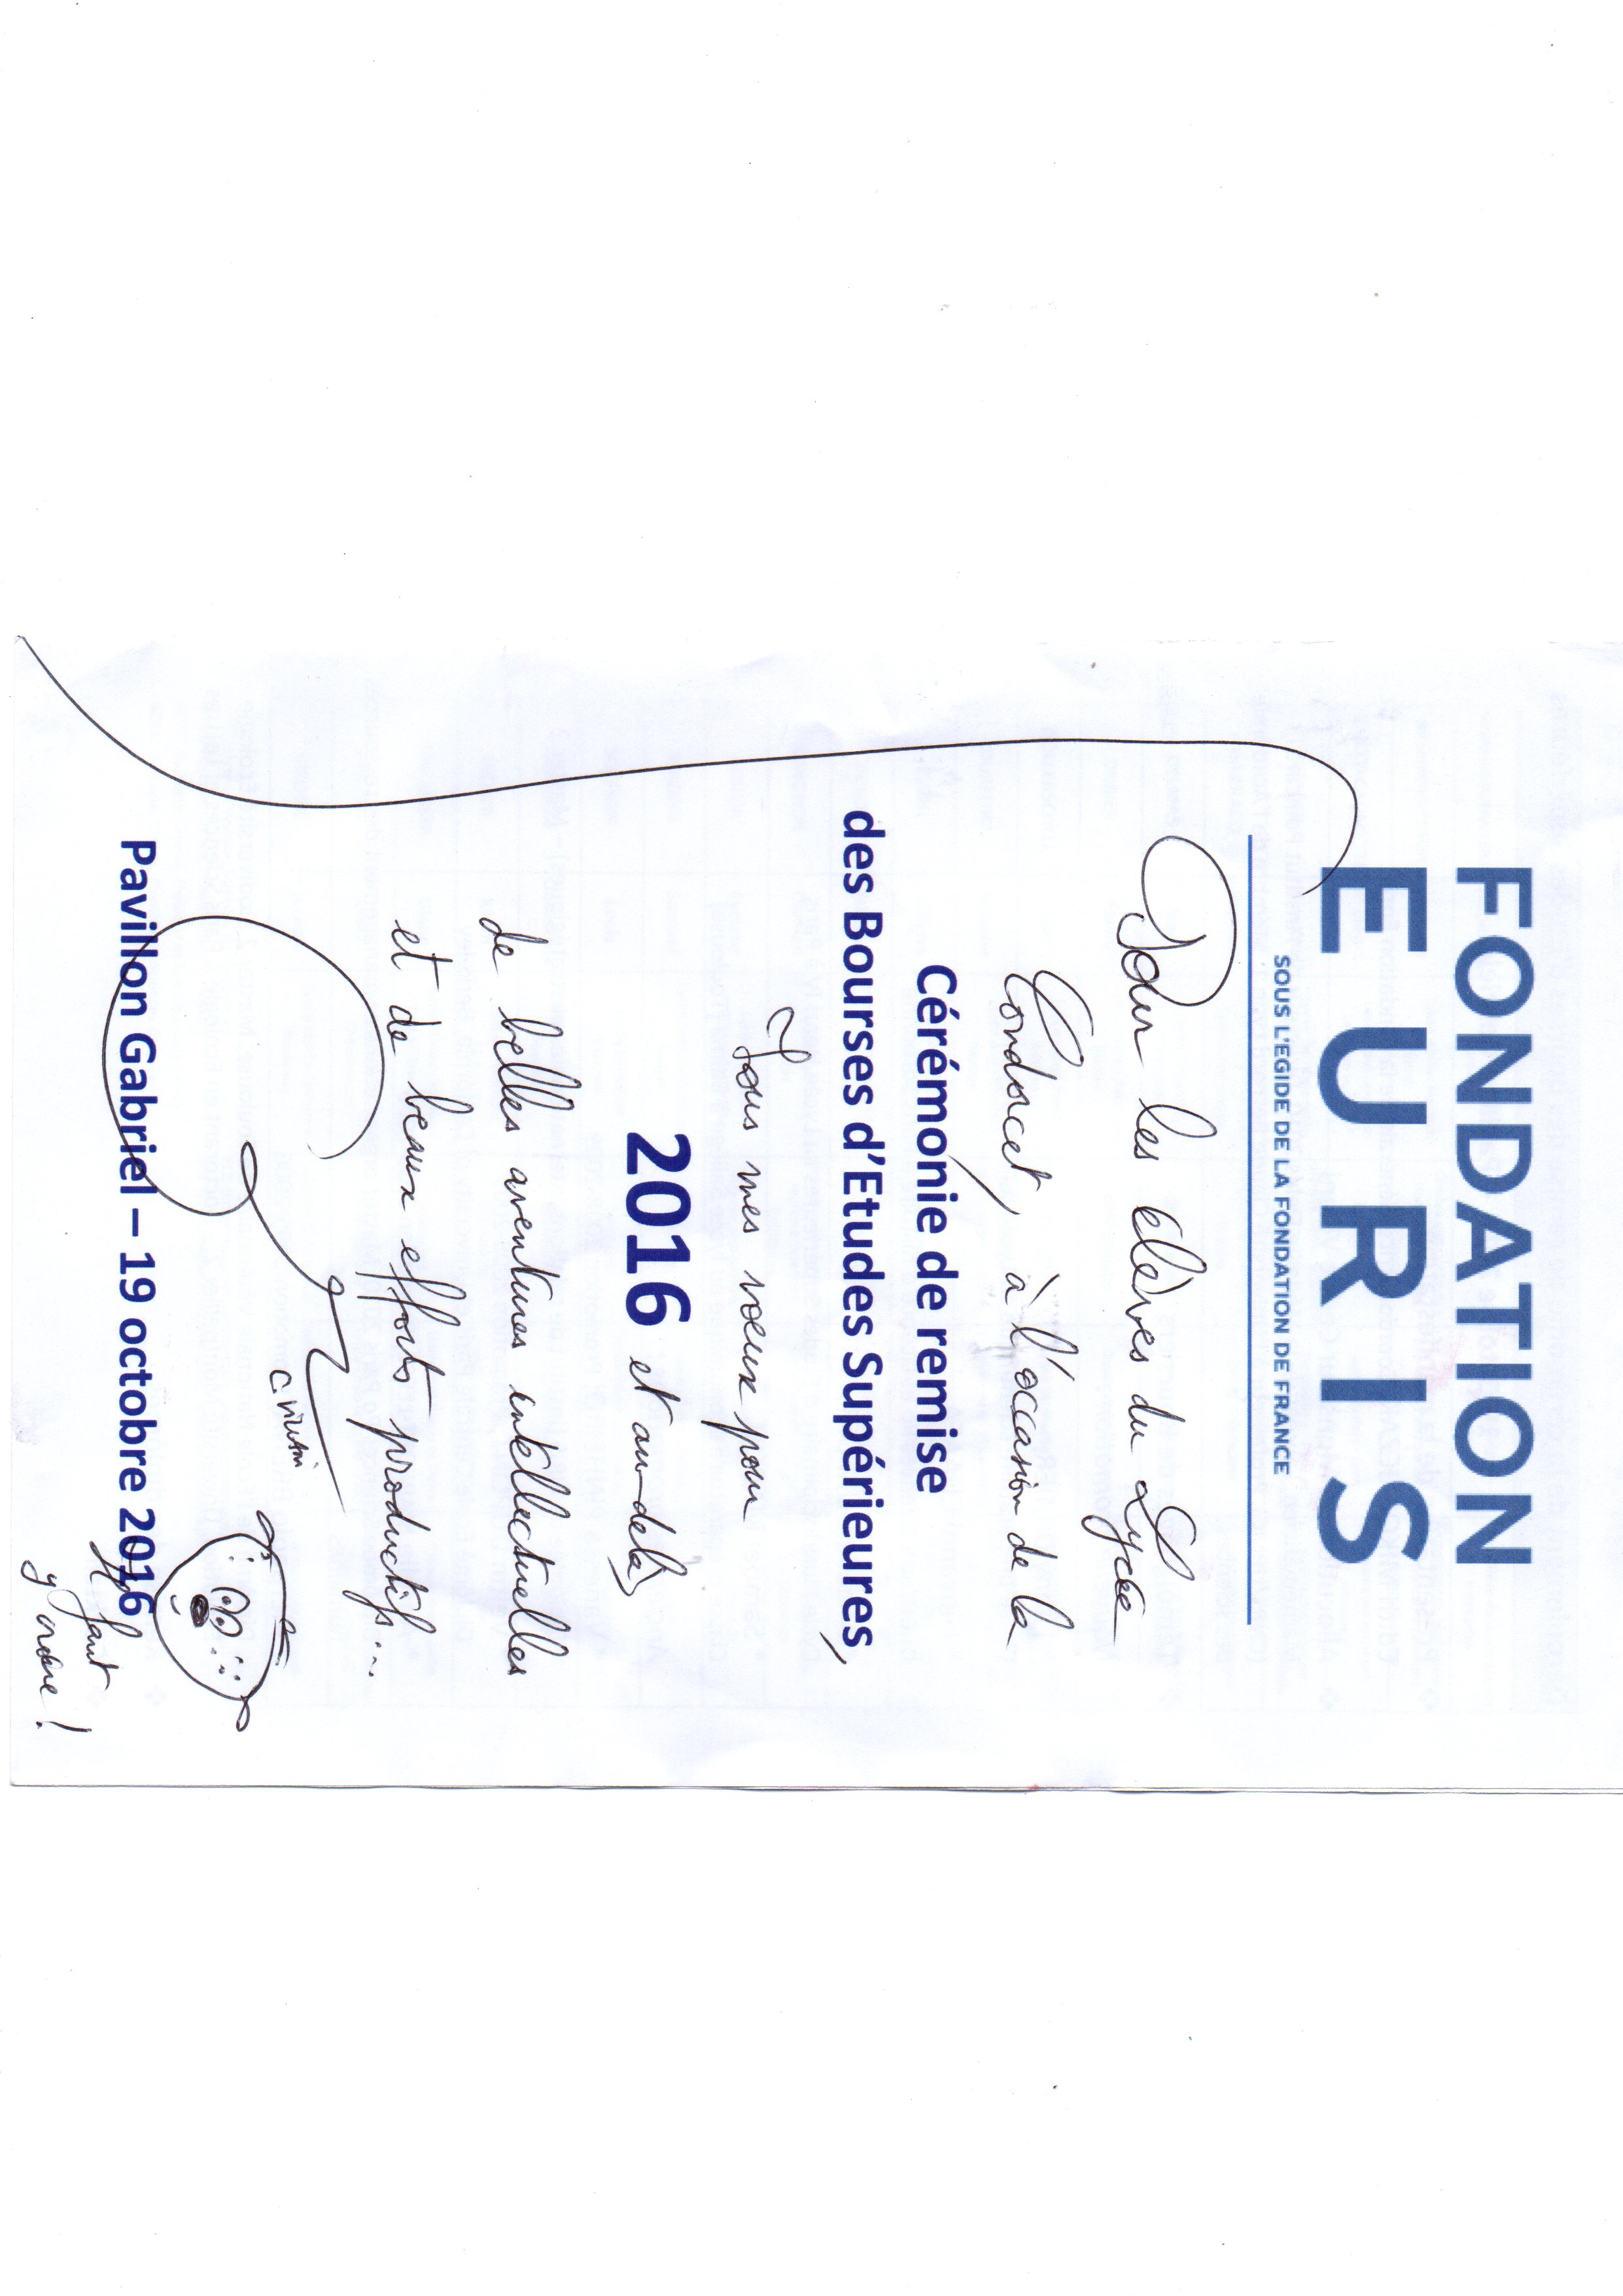 FONDATION
EURIS
SOUS L'EGIDE DE LA FONDATION DE FRANCE
Pour les élèves du Lycée
Condorcet, à l'occasion de la
Cérémonie de remise
des Bourses d'Etudes Supérieures,
Tous mes vœux pour
2016 et au-delà,
de belles aventures intellectuelles
et de beaux efforts productifs...
C Villani
Il faut
y croire !
Pavillon Gabriel – 19 octobre 2016